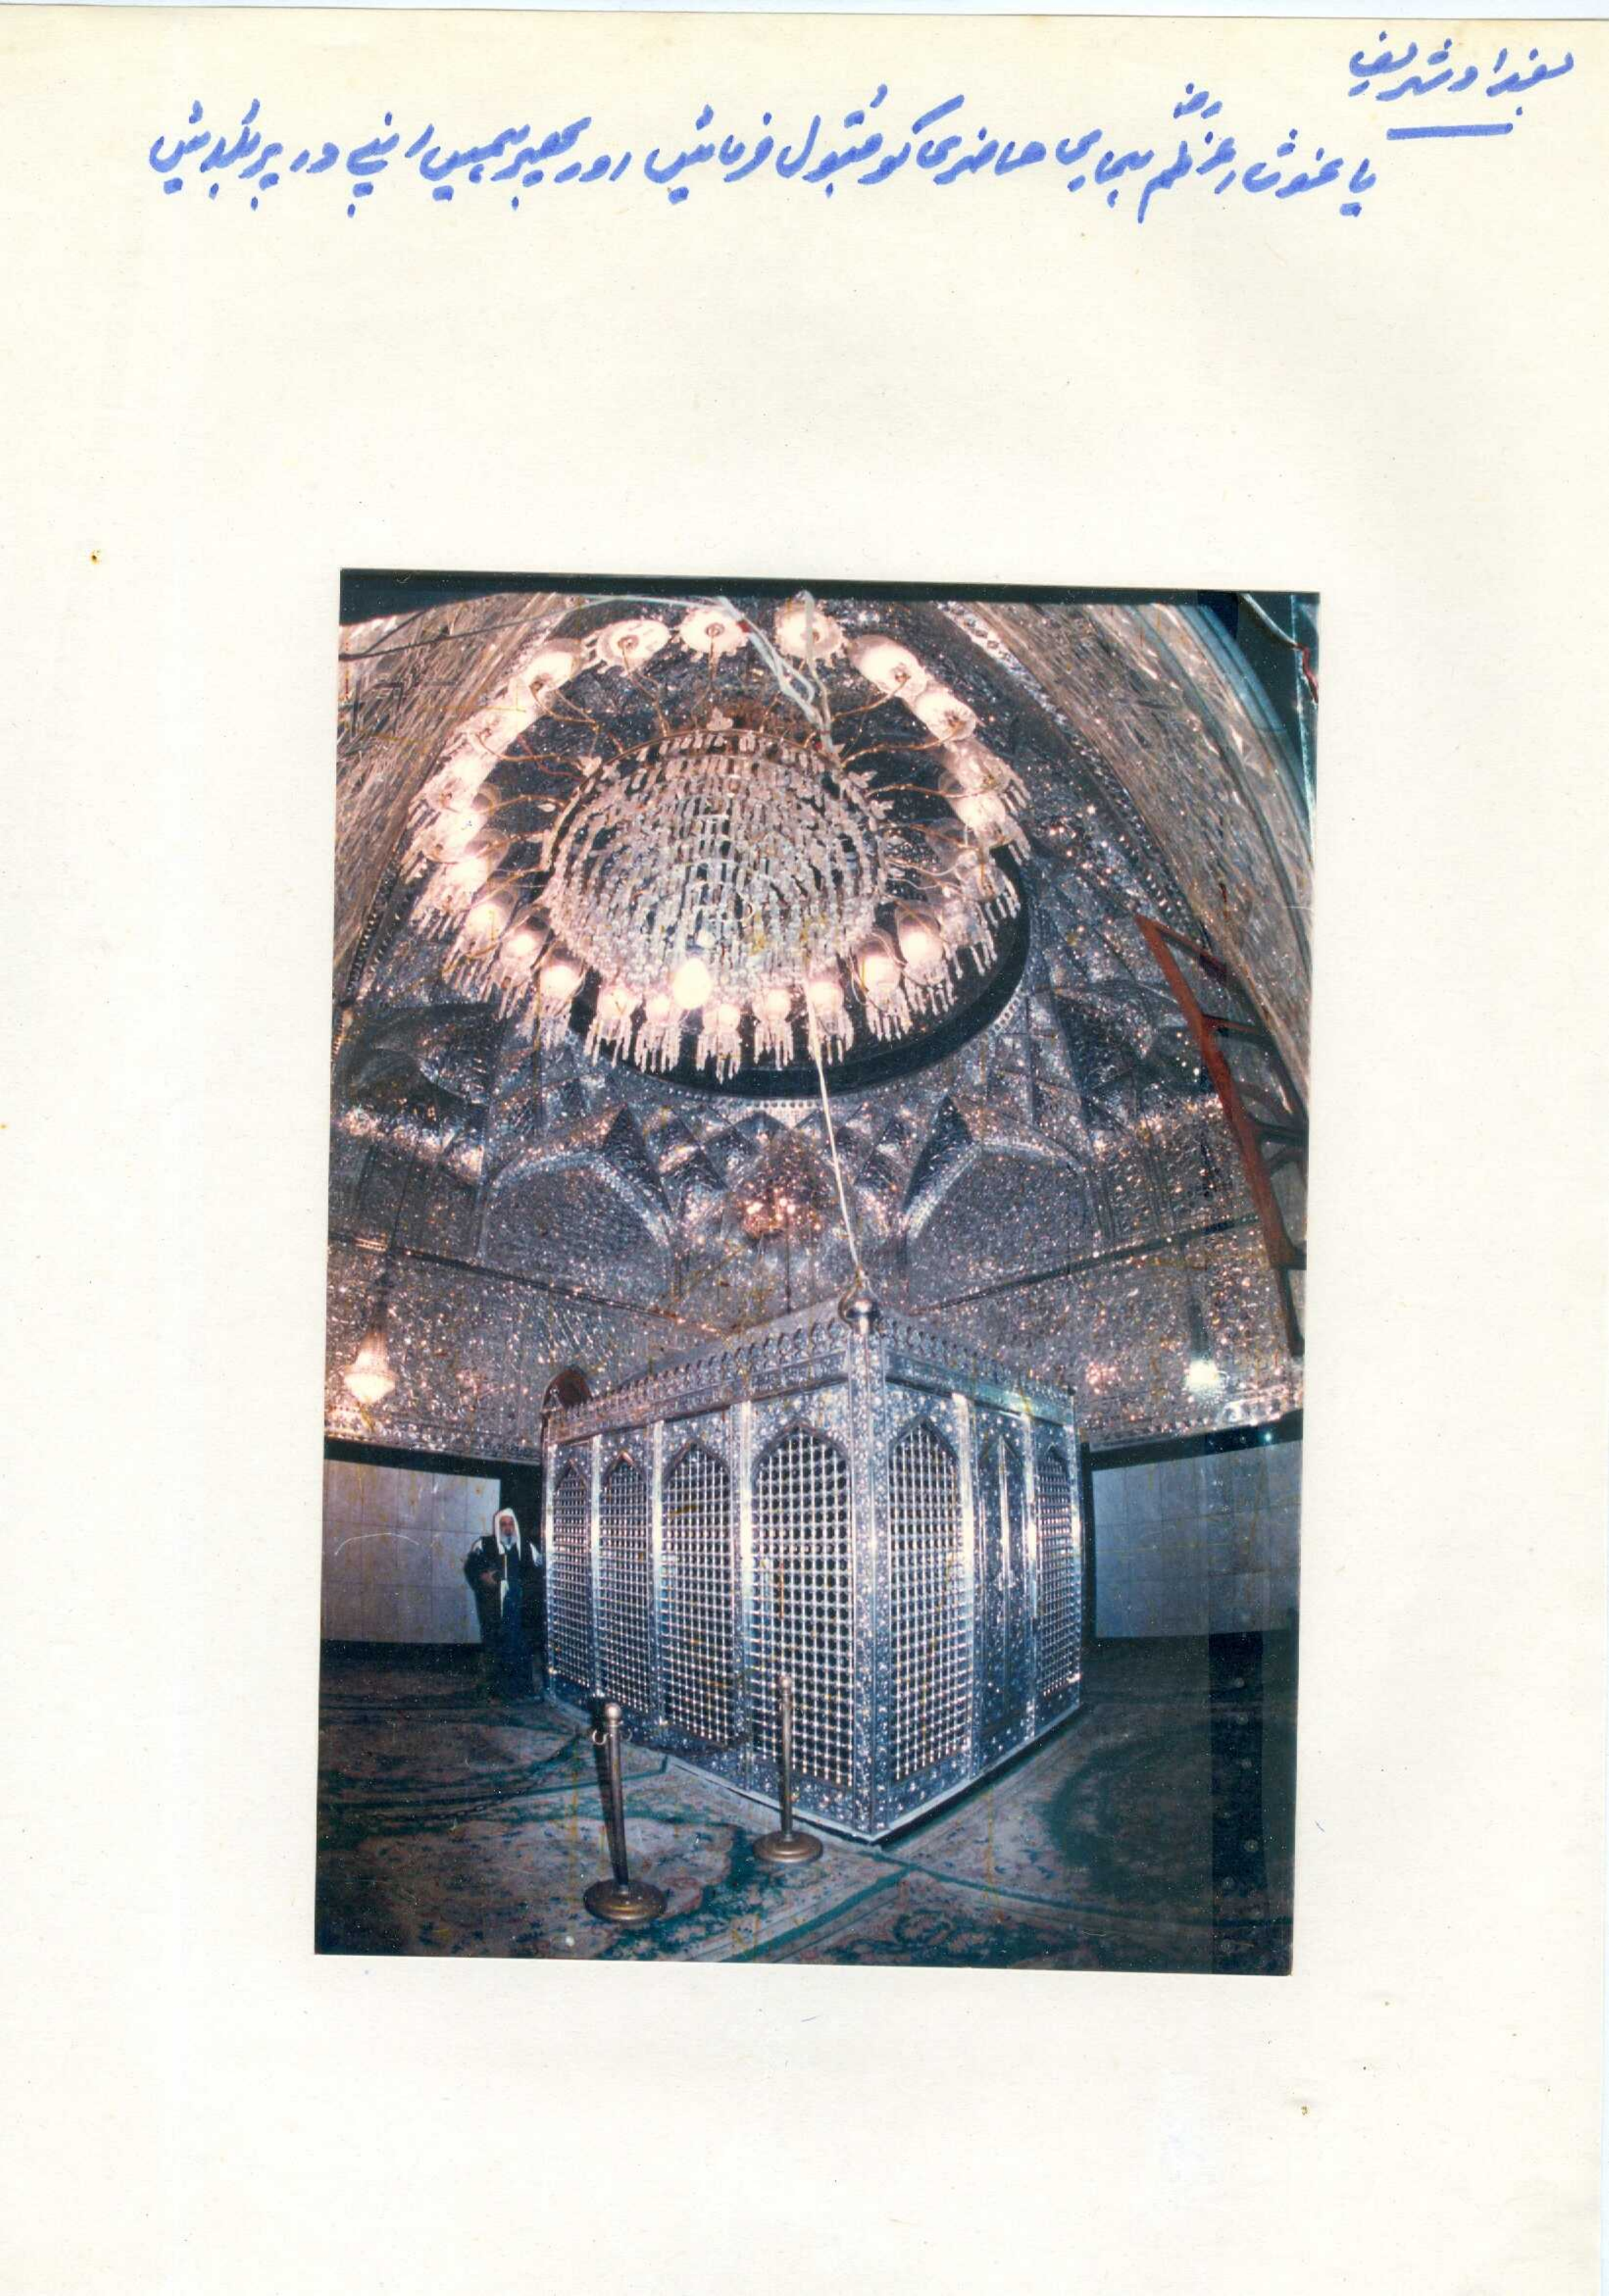 بغداد شریف
یا غوث اعظمؓ ہماری حاضری کو قبول فرمائیں اور پھر ہمیں اپنے در پر بلائیں